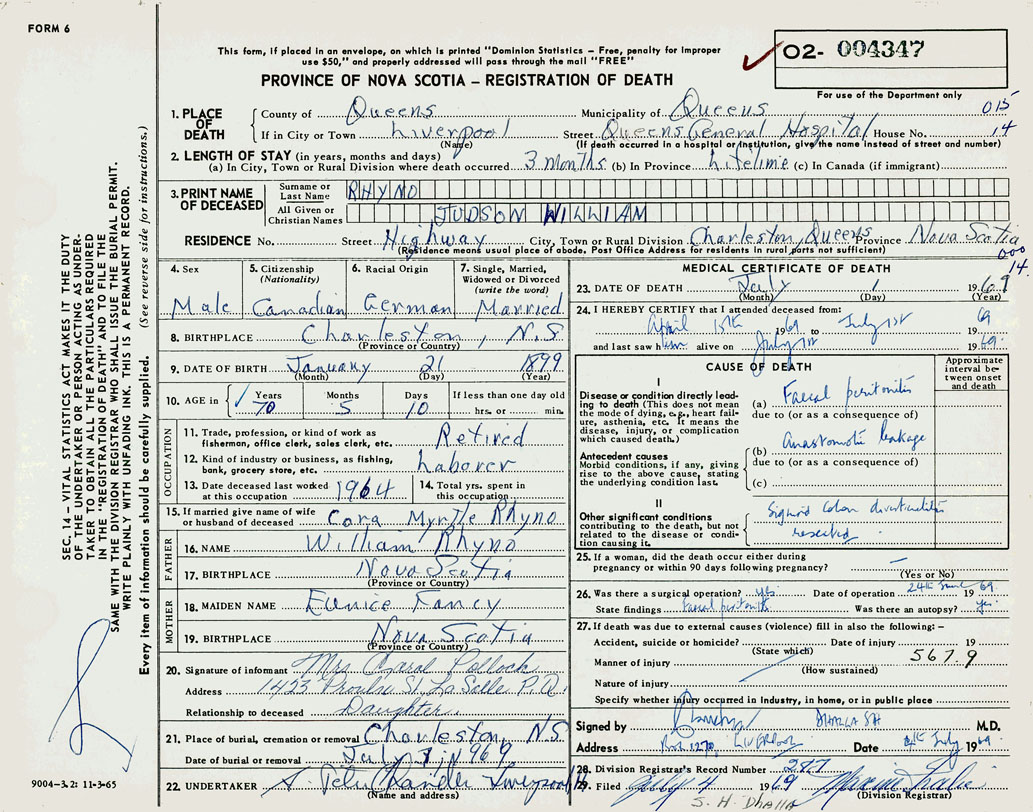 FORM 6
This form, if placed in an envelope, on which is printed "Dominion Statistics – Free, penalty for improper
use $50," and properly addressed will pass through the mail "FREE"
PROVINCE OF NOVA SCOTIA – REGISTRATION OF DEATH
O2- 004347
For use of the Department only
015
14
1. PLACE OF DEATH
County of Queens Municipality of Queens
If in City or Town Liverpool Street Queens General Hospital House No.
(Name) (If death occurred in a hospital or institution, give the name instead of street and number)
2. LENGTH OF STAY (in years, months and days)
(a) In City, Town or Rural Division where death occurred 3 months (b) In Province Lifetime (c) In Canada (if immigrant)
3. PRINT NAME OF DECEASED
Surname or Last Name RHYNO
All Given or Christian Names JUDSON WILLIAM
RESIDENCE No. Street Highway City, Town or Rural Division Charleston, Queens Province Nova Scotia
(Residence means usual place of abode. Post Office Address for residents in rural parts not sufficient)
000
14
4. Sex Male
5. Citizenship (Nationality) Canadian
6. Racial Origin German
7. Single, Married, Widowed or Divorced (write the word) Married
8. BIRTHPLACE Charleston, N.S
(Province or Country)
9. DATE OF BIRTH January 21 1899
(Month) (Day) (Year)
10. AGE in Years 70 Months 5 Days 10 If less than one day old hrs. or min.
OCCUPATION
11. Trade, profession, or kind of work as fisherman, office clerk, sales clerk, etc. Retired
12. Kind of industry or business, as fishing, bank, grocery store, etc. Laborer
13. Date deceased last worked at this occupation 1964
14. Total yrs. spent in this occupation
15. If married give name of wife or husband of deceased Cora Myrtle Rhyno
FATHER
16. NAME William Rhyno
17. BIRTHPLACE Nova Scotia
(Province or Country)
MOTHER
18. MAIDEN NAME Eunice Fancy
19. BIRTHPLACE Nova Scotia
(Province or Country)
20. Signature of informant Mrs Carol Pollock
Address 1423 St, La Salle P.Q.
Relationship to deceased Daughter.
21. Place of burial, cremation or removal Charleston, N.S.
Date of burial or removal July 1969
22. UNDERTAKER Chandler Liverpool
(Name and address)
MEDICAL CERTIFICATE OF DEATH
23. DATE OF DEATH July 1 1969
(Month) (Day) (Year)
24. I HEREBY CERTIFY that I attended deceased from:
April 15th 1969 to July 1st 69
and last saw him alive on July 1st 1969
CAUSE OF DEATH
Approximate interval between onset and death
I
Disease or condition directly leading to death (This does not mean the mode of dying, e.g., heart failure, asthenia, etc. It means the disease, injury, or complication which caused death.)
(a) Faecal peritonitis
due to (or as a consequence of)
Antecedent causes
Morbid conditions, if any, giving rise to the above cause, stating the underlying condition last.
(b) Anastomotic leakage
due to (or as a consequence of)
(c)
II
Other significant conditions contributing to the death, but not related to the disease or condition causing it.
Sigmoid Colon diverticulitis
resected
25. If a woman, did the death occur either during pregnancy or within 90 days following pregnancy? –
(Yes or No)
26. Was there a surgical operation? yes. Date of operation 24th June 1969
State findings Faecal peritonitis Was there an autopsy? yes
27. If death was due to external causes (violence) fill in also the following: –
Accident, suicide or homicide? Date of injury 19
(State which)
567.9
Manner of injury
(How sustained)
Nature of injury
Specify whether injury occurred in Industry, in home, or in public place
Signed by DHALLA SH M.D.
Address Box 1270, LIVERPOOL Date 4th July 1969
28. Division Registrar's Record Number 277
29. Filed July 4 1969
(Division Registrar)
S. H. Dhalla
SEC. 14 – VITAL STATISTICS ACT MAKES IT THE DUTY
OF THE UNDERTAKER OR PERSON ACTING AS UNDER-
TAKER TO OBTAIN ALL THE PARTICULARS REQUIRED
IN THE "REGISTRATION OF DEATH" AND TO FILE THE
SAME WITH THE DIVISION REGISTRAR WHO SHALL ISSUE THE BURIAL PERMIT.
WRITE PLAINLY WITH UNFADING INK. THIS IS A PERMANENT RECORD.
Every item of information should be carefully supplied. (See reverse side for instructions.)
9004-3.2: 11-3-65